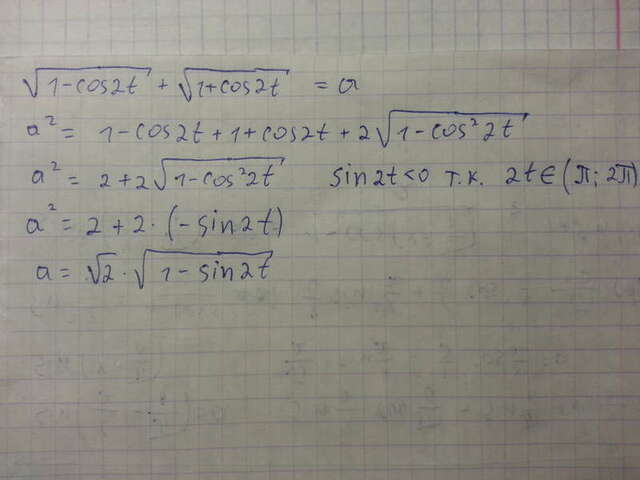 √(1-cos2t) + √(1+cos2t) = a
a² = 1-cos2t+1+cos2t+2√(1-cos²2t)
a² = 2+2√(1-cos²2t) sin2t<0 т.к. 2t∈(π; 2π)
a² = 2+2·(-sin2t)
a = √2·√(1-sin2t)